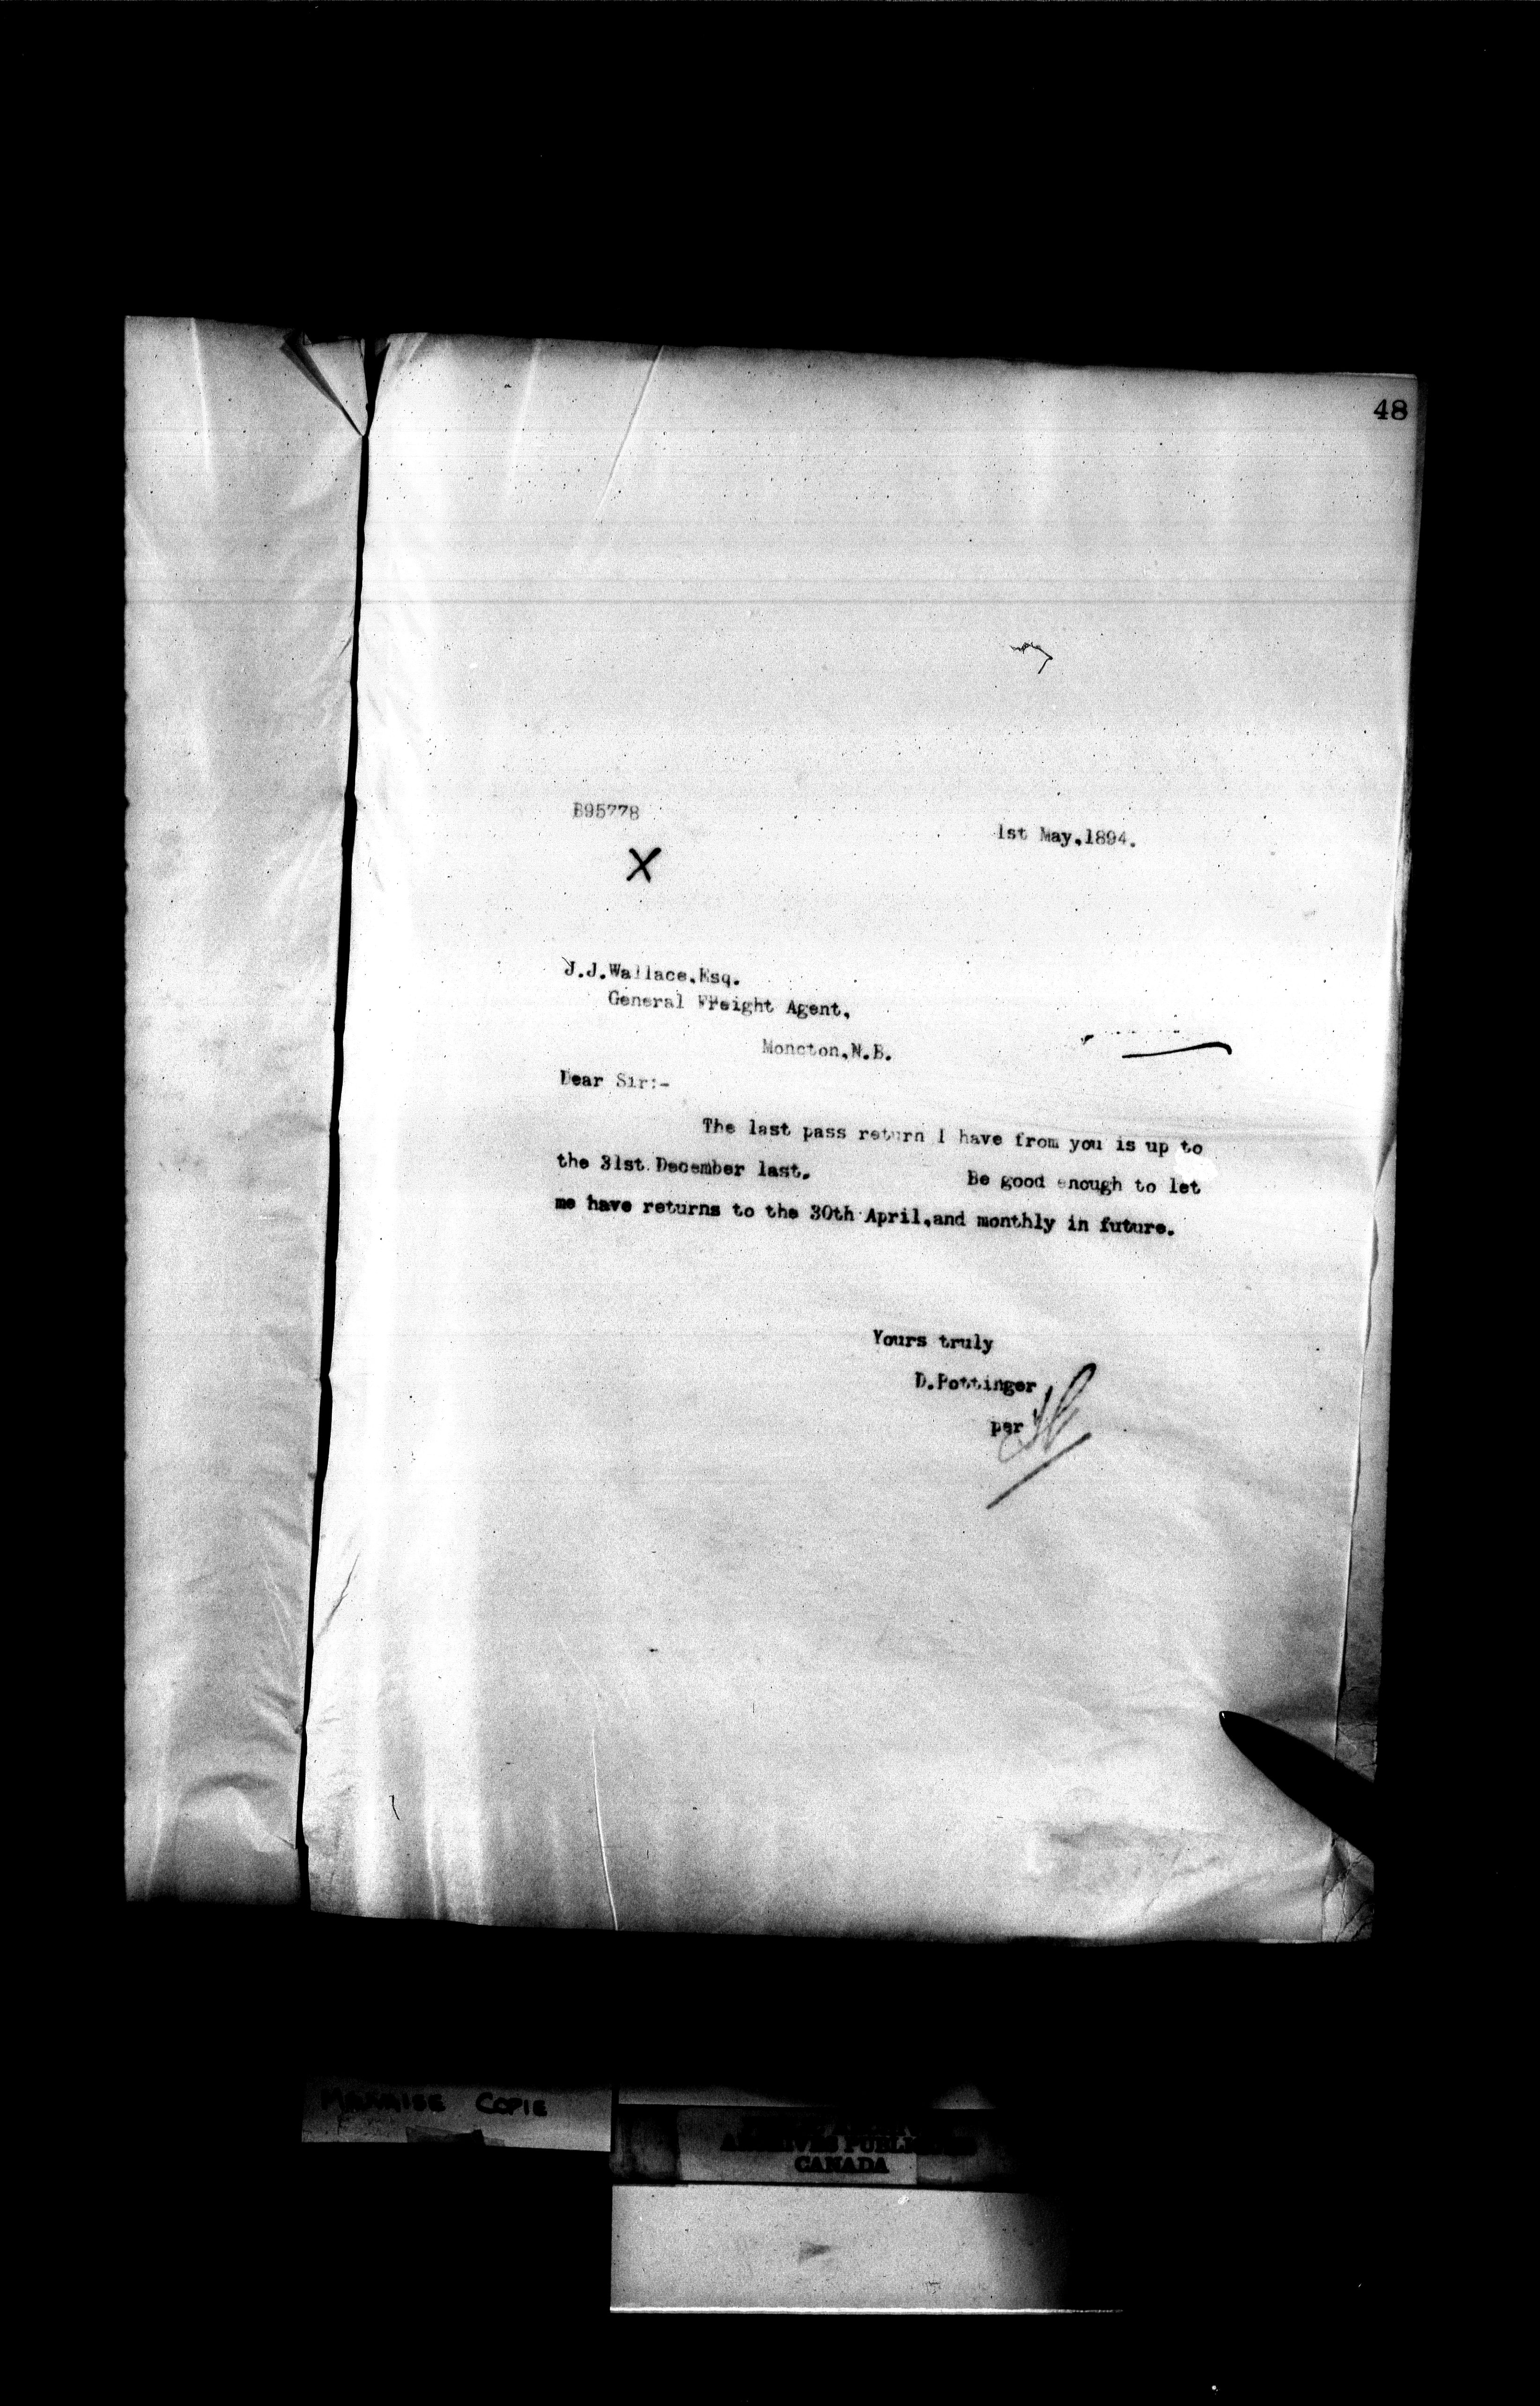 48
B95778
1st May,1894.
X
J.J.Wallace.Esq.
General Freight Agent,
Moncton,N.B.
Dear Sir:-
The last pass return I have from you is up to
the 31st December last. Be good enough to let
me have returns to the 30th April,and monthly in future.
Yours truly
D.Pottinger
per
COPIE
ARCHIVES PUBLIQUES
CANADA